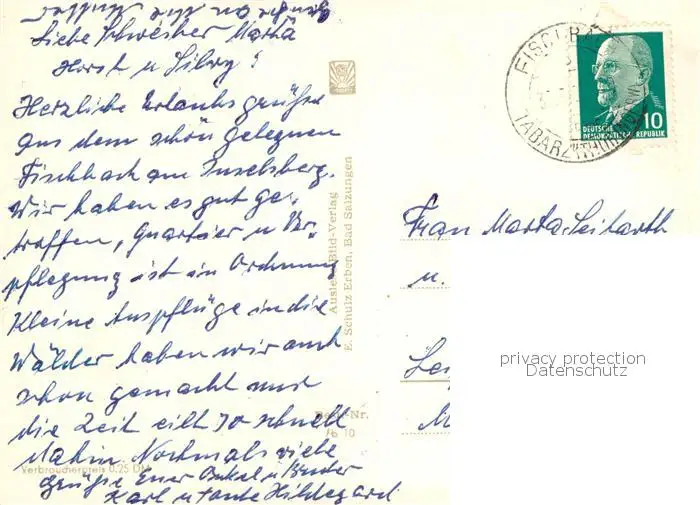 Liebe Schwester Marta
Horst u Silvy!
Herzliche Urlaubsgrüße
aus dem schön gelegenen
Fischbach am Inselsberg.
Wir haben es gut ge-
troffen, Quartier u Ver-
pflegung ist in Ordnung
Kleine Ausflüge in die
Wälder haben wir auch
schon gemacht und
die Zeit eilt so schnell
dahin. Nochmals viele
Grüße Euer Onkel u Bruder
Karl u Tante Hildegard
Verbraucherpreis 0,25 DM
Auslese-Bild-Verlag
E. Schulz Erben, Bad Salzungen
Best.-Nr.
10
TABARZ (THÜR
10
DEUTSCHE
DEMOKRATISCHE REPUBLIK
Frau Marta
u.
privacy protection
Datenschutz